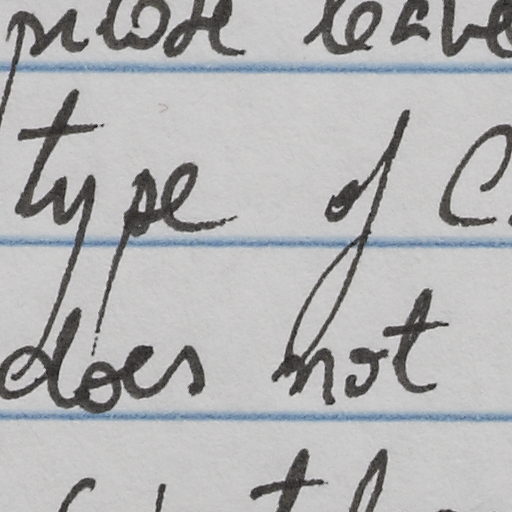 pilose leave
type of C
does not